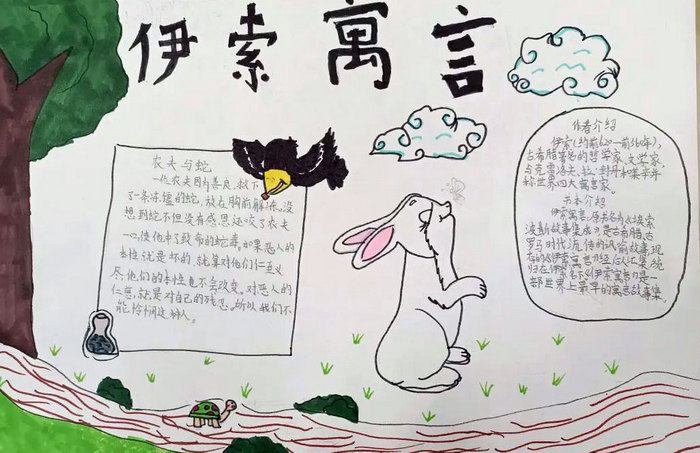 伊索寓言
农夫与蛇
一位农夫因为善良,救下
了一条冻僵的蛇,放在胸前解冻。没
想到蛇不但没有感恩还咬了农夫
一口,使他中了致命的蛇毒。如果恶人的
本性就是坏的,就算对他们仁至义
尽,他们的本性也不会改变。对恶人的
仁慈,就是对自己的残忍。所以我们不
能怜悯这种人。
作者介绍
伊索(约前620—前560年),
古希腊著名的哲学家、文学家,
与克雷洛夫、拉·封丹和莱辛并
称世界四大寓言家。
书本介绍
伊索寓言,原书名为《埃索
波斯故事集成》是古希腊、古
罗马时代流传的讽喻故事,现
在的《伊索寓言》经后人汇集,统
归在伊索名下。《伊索寓言》是一
部世界上最早的寓言故事集。